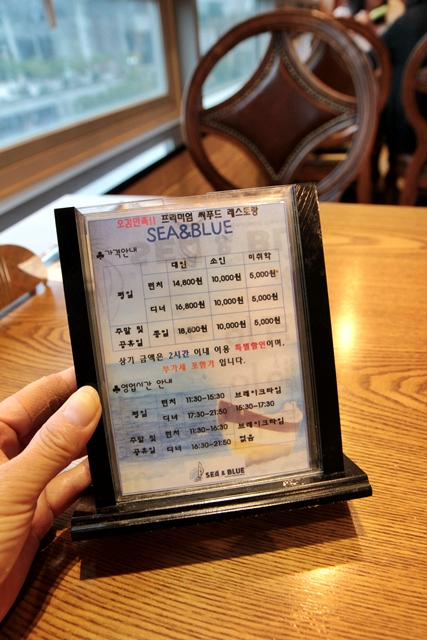 오감만족!! 프리미엄 씨푸드 레스토랑
SEA&BLUE
♣가격안내
대인 소인 미취학
평일 런치 14,800원 10,000원 5,000원
디너 16,800원 10,000원 5,000원
주말 및 공휴일 통일 18,600원 10,000원 5,000원
상기 금액은 2시간 이내 이용 특별할인이며,
부가세 포함가 입니다.
♣영업시간 안내
평일 런치 11:30-15:30 브레이크타임
디너 17:30-21:50 15:30-17:30
주말 및 런치 11:30-16:30 브레이크타임
공휴일 디너 16:30-21:50 없음
SEA & BLUE